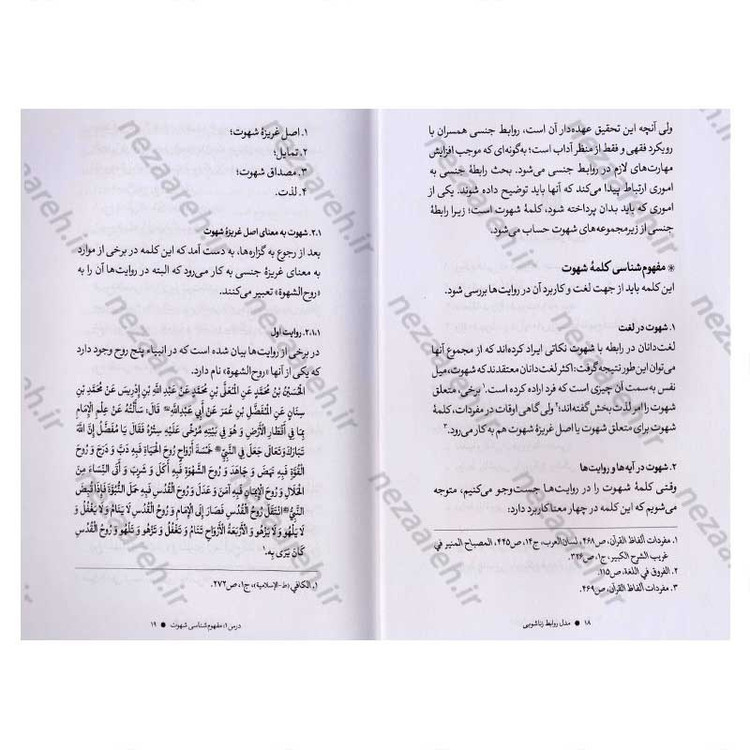 ولی آنچه این تحقیق عهده‌دار آن است، روابط جنسی همسران با
رویکرد فقهی و فقط از منظر آداب است؛ به‌گونه‌ای که موجب افزایش
مهارت‌های لازم در روابط جنسی می‌شود. بحث رابطهٔ جنسی به
اموری ارتباط پیدا می‌کند که آنها باید توضیح داده شوند. یکی از
اموری که باید بدان پرداخته شود، کلمهٔ شهوت است؛ زیرا رابطهٔ
جنسی از زیرمجموعه‌های شهوت حساب می‌شود.
مفهوم‌شناسی کلمهٔ شهوت
این کلمه باید از جهت لغت و کاربرد آن در روایت‌ها بررسی شود.
۱. شهوت در لغت
لغت‌دانان در رابطه با شهوت نکاتی ایراد کرده‌اند که از مجموع آنها
می‌توان این طور نتیجه گرفت: اکثر لغت‌دانان معتقدند که شهوت، میل
نفس به سمت آن چیزی است که فرد اراده کرده است.۱ برخی، متعلق
شهوت را امر لذت بخش گفته‌اند؛۲ ولی گاهی اوقات در مفردات، کلمهٔ
شهوت برای متعلق شهوت یا اصل غریزهٔ شهوت هم به کار می‌رود.۳
۲. شهوت در آیه‌ها و روایت‌ها
وقتی کلمهٔ شهوت را در روایت‌ها جست‌وجو می‌کنیم، متوجه
می‌شویم که این کلمه در چهار معنا کاربرد دارد:
۱. مفردات ألفاظ القرآن، ص۴۶۸، لسان العرب، ج۱۴، ص۴۴۵، المصباح المنیر في
غریب الشرح الکبیر، ج۱، ص۳۲۶.
۲. الفروق في اللغة، ص۱۱۵.
۳. مفردات ألفاظ القرآن، ص۴۶۹.
۱۸ ● مدل روابط زناشویی
۱. اصل غریزهٔ شهوت؛
۲. تمایل؛
۳. مصداق شهوت؛
۴. لذت.
۲.۱. شهوت به معنای اصل غریزهٔ شهوت
بعد از رجوع به گزاره‌ها، به دست آمد که این کلمه در برخی از موارد
به معنای غریزهٔ جنسی به کار می‌رود که البته در روایت‌ها آن را به
«روح‌الشهوة» تعبیر می‌کنند.
۲.۱.۱. روایت اول
در برخی از روایت‌ها بیان شده است که در انبیاء پنج روح وجود دارد
که یکی از آنها «روح‌الشهوة» نام دارد.
الْحُسَيْنُ بْنُ مُحَمَّدٍ عَنِ الْمُعَلَّى بْنِ مُحَمَّدٍ عَنْ عَبْدِ اللَّهِ بْنِ إِدْرِيسَ عَنْ مُحَمَّدِ بْنِ
سِنَانٍ عَنِ الْمُفَضَّلِ بْنِ عُمَرَ عَنْ أَبِي عَبْدِاللَّهِ قَالَ، سَأَلْتُهُ عَنْ عِلْمِ الْإِمَامِ
بِمَا فِي أَقْطَارِ الْأَرْضِ وَ هُوَ فِي بَيْتِهِ مُرْخًى عَلَيْهِ سِتْرُهُ فَقَالَ يَا مُفَضَّلُ إِنَّ اللَّهَ
تَبَارَكَ وَتَعَالَى جَعَلَ فِي النَّبِيِّ خَمْسَةَ أَرْوَاحٍ رُوحَ الْحَيَاةِ فَبِهِ دَبَّ وَ دَرَجَ وَ رُوحَ
الْقُوَّةِ فَبِهِ نَهَضَ وَ جَاهَدَ وَ رُوحَ الشَّهْوَةِ فَبِهِ أَكَلَ وَ شَرِبَ وَ أَتَى النِّسَاءَ مِنَ
الْحَلَالِ وَ رُوحَ الْإِيمَانِ فَبِهِ آمَنَ وَ عَدَلَ وَ رُوحَ الْقُدُسِ فَبِهِ حَمَلَ النُّبُوَّةَ فَإِذَا قُبِضَ
النَّبِيُّ انْتَقَلَ رُوحُ الْقُدُسِ فَصَارَ إِلَى الْإِمَامِ وَ رُوحُ الْقُدُسِ لَا يَنَامُ وَ لَا يَغْفُلُ وَ
لَا يَلْهُو وَ لَا يَزْهُو وَ الْأَرْبَعَةُ الْأَرْوَاحِ تَنَامُ وَ تَغْفُلُ وَ تَزْهُو وَ تَلْهُو وَ رُوحُ الْقُدُسِ
كَانَ يَرَى بِهِ.۱
۱. الکافي (ط-الإسلامیة)، ج۱، ص۲۷۲.
درس ۱: مفهوم‌شناسی شهوت ● ۱۹
nezaareh.ir